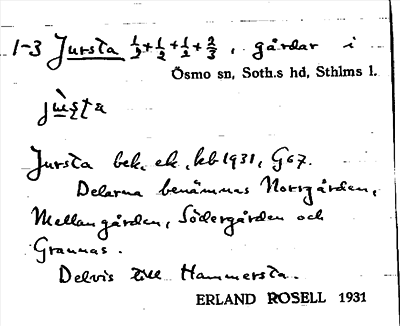 1-3 Jursta ½+½+½+⅔, gårdar i
Ösmo sn, Soth.s hd, Sthlms l.
Jursta bek. ek., kb 1931, G67.
Delarna benämnas Norrgården,
Mellangården, Södergården och
Grannas.
Delvis till Hammersta.
ERLAND ROSELL 1931